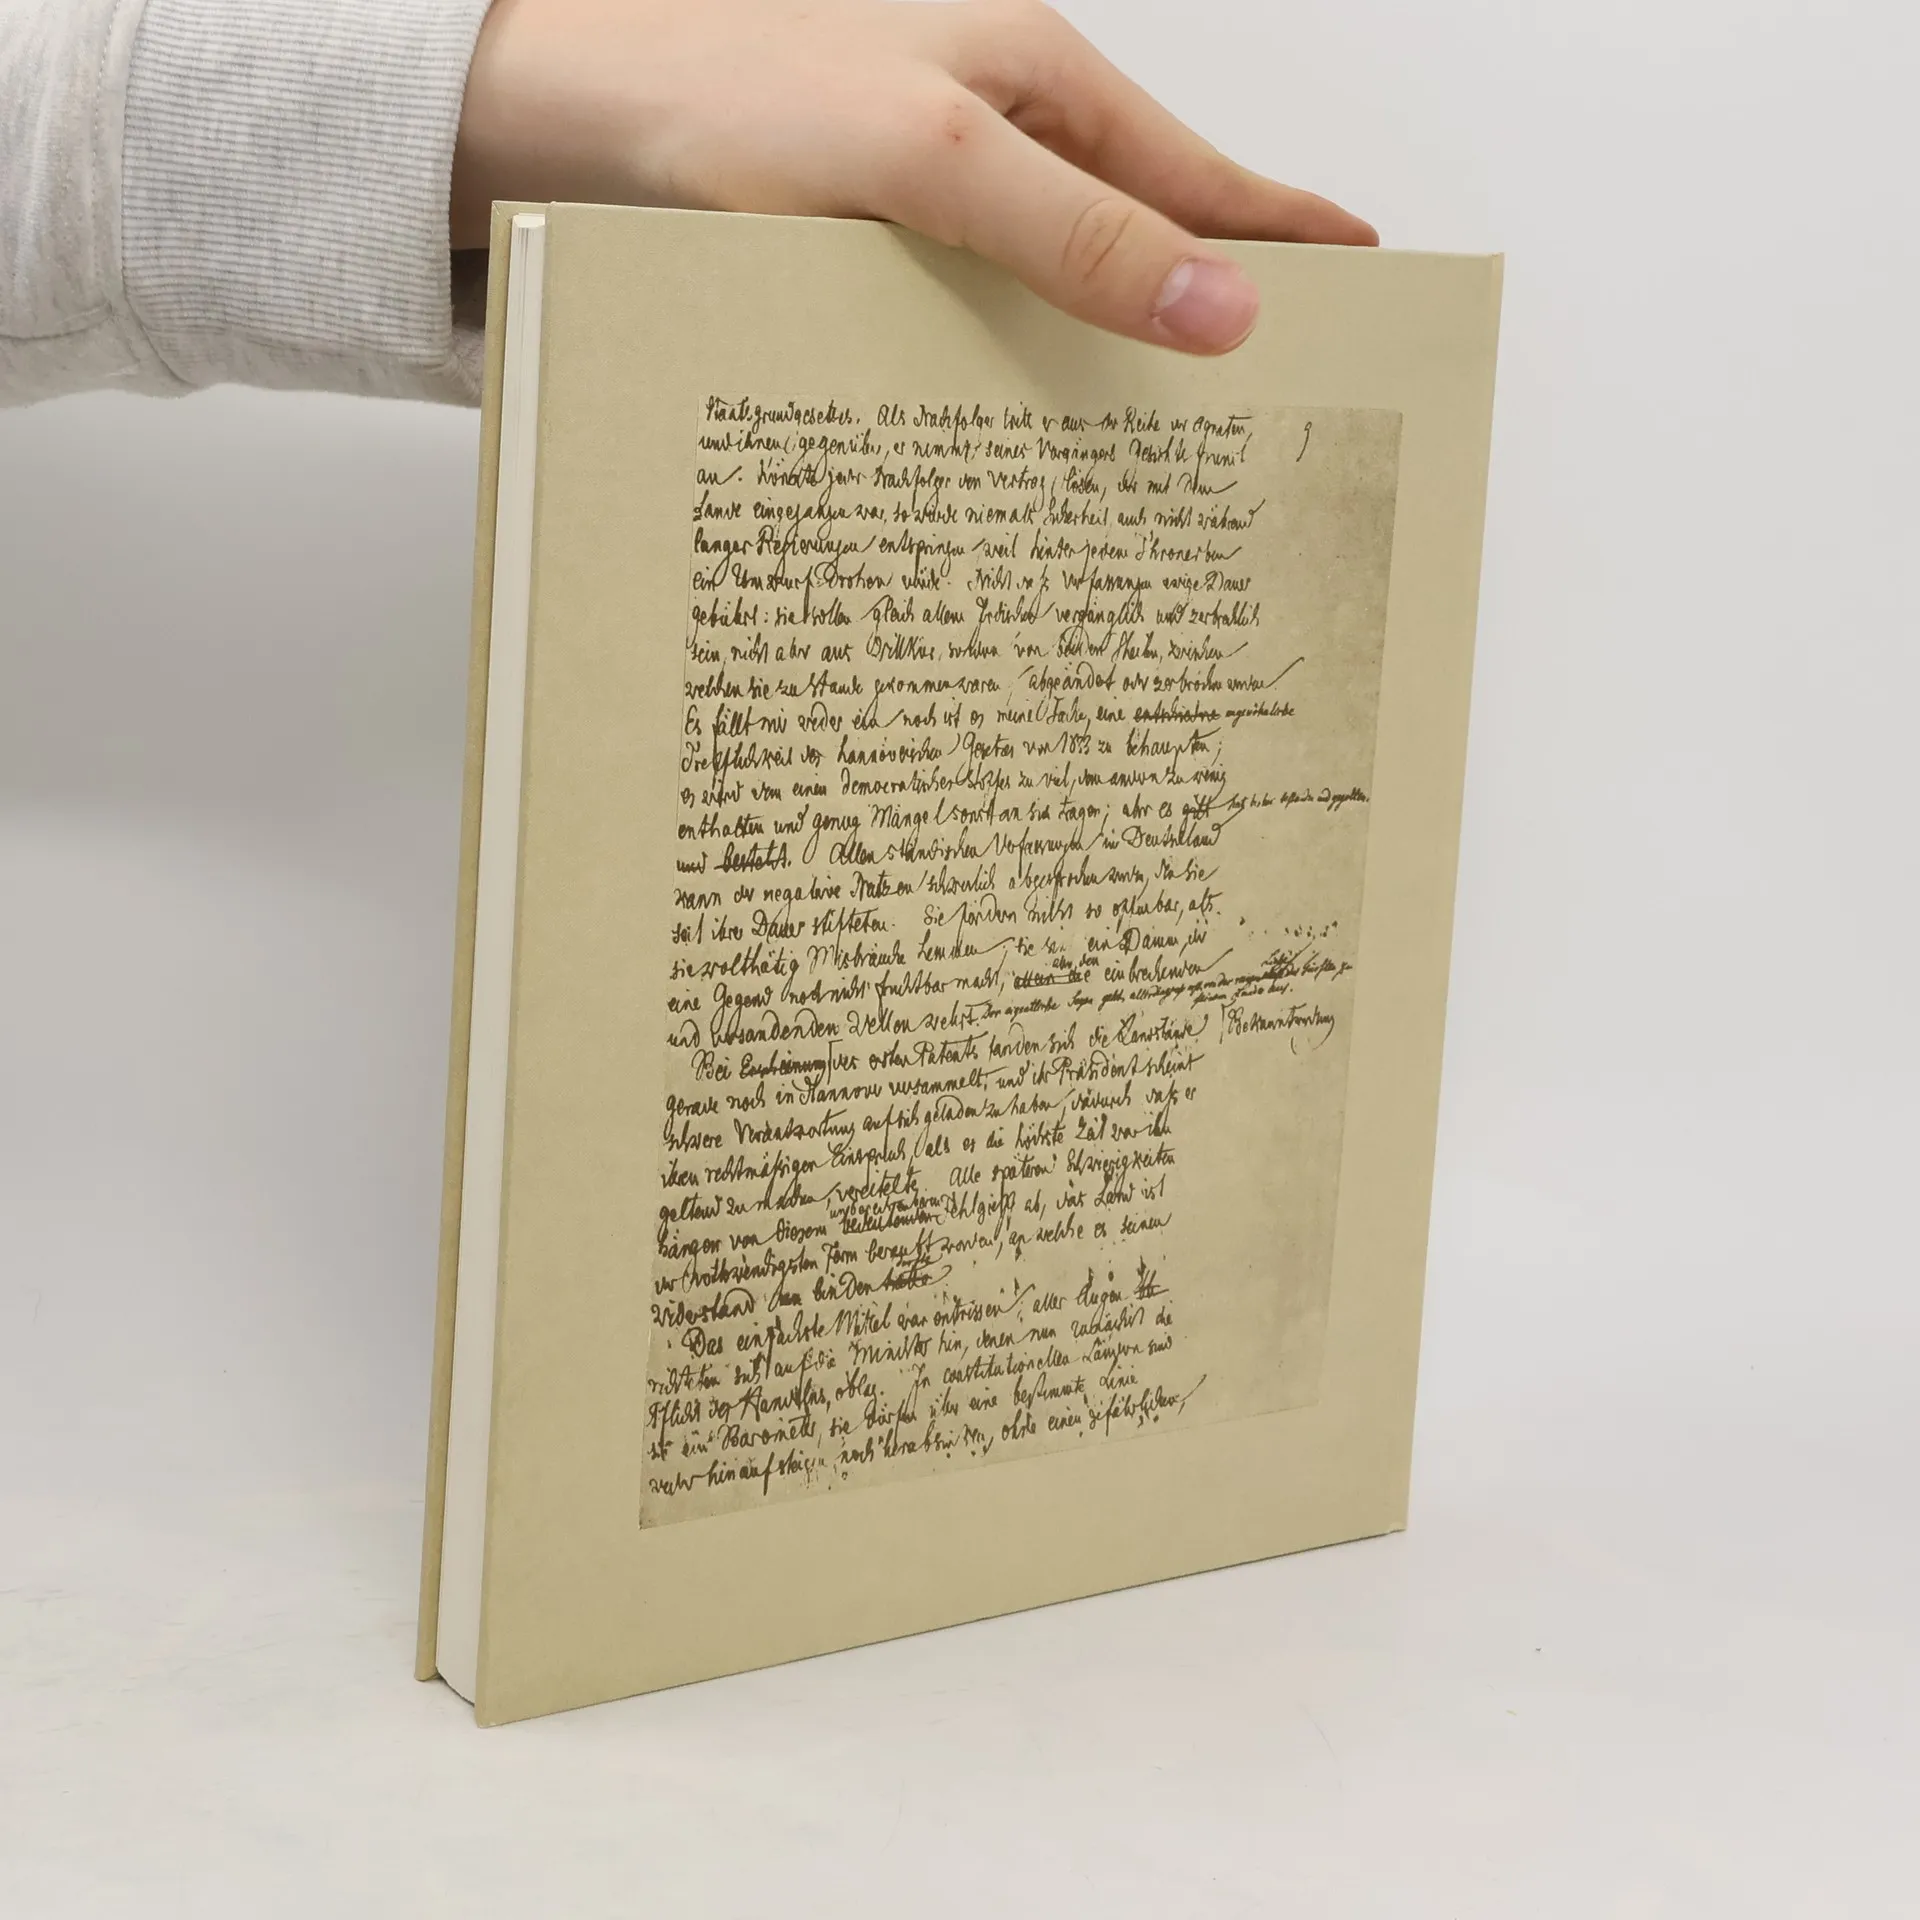 Staatsgrundgesetzes. Als Nachfolger tritt er aus der Reihe der Agnaten,
und ihnen gegenüber, er nimmt seines Vorgängers Gesicht
an. Könnte jeder Nachfolger den Vertrag lösen, der mit dem
Lande eingegangen war, so würde niemals Sicherheit, auch nicht während
langer Regierungen entspringen weil hinter jedem Thronerben
ein Umsturz drohen würde. Nicht daß Verfassungen ewige Dauer
gebührt: sie sollen gleich allem Irdischen vergänglich und zerbrechlich
sein, nicht aber aus Willkür, sondern von beiden Theilen, zwischen
welchen sie zu stande gekommen waren, abgeändert oder zerbrochen werden.
Es fällt mir weder ein noch ist es meine Sache, eine entschiedne
Trefflichkeit des hannöverischen Gesetzes von 1833 zu behaupten;
es wird dem einen democratischer Stoffes zu viel, dem andern zu wenig
enthalten und genug Mängel sonst an sich tragen; aber es gilt hat bisher bestanden und gegolten.
und besteht. Allen ständischen Verfassungen in Deutschland
kann der negative Nutzen schwerlich abgesprochen werden, den sie
seit ihrer Dauer stifteten. Sie fördern nicht so offenbar, als
sie wolthätig Misbräuche hemmen; sie sind ein Damm, der
eine Gegend noch nicht fruchtbar macht, allein die aber den einbrechenden
und versandenden Wellen wehrt. Der eigentliche Segen geht allerdings
Bei Erscheinung des ersten Patents fanden sich die Landstände Bekanntwerdung
gerade noch in Hannover versammelt, und ihr Präsident scheint
schwere Verantwortung auf sich geladen zu haben, dadurch daß er
ihren rechtmäßigen Einspruch, als es die höchste Zeit war ihn
geltend zu machen, vereitelte. Alle späteren Schwierigkeiten
hängen von diesem bedeutenden Fehlgriff ab, das Land ist
der nothwendigsten Form beraubt worden, an welche es seinen
Widerstand binden hätte
Das einfachste Mittel war entrissen; aller Augen
richteten sich auf die Minister hin, denen nun zunächst die
Pflicht des Handelns oblag. In constitutionellen Ländern sind
sie ein Barometer, sie dürfen über eine bestimmte Linie
weder hinaufsteigen, noch herabsinken, ohne einen gefährlichen,